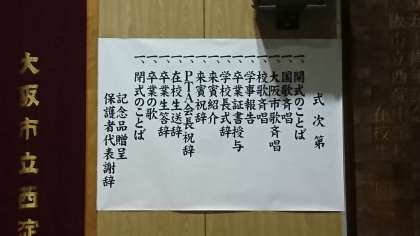 式次第
一、開式のことば
一、国歌斉唱
一、大阪市歌斉唱
一、校歌斉唱
一、学事報告
一、卒業証書授与
一、学校長式辞
一、来賓紹介
一、来賓祝辞
一、PTA会長祝辞
一、在校生送辞
一、卒業生答辞
一、卒業の歌
一、閉式のことば
記念品贈呈
保護者代表謝辞
大阪市立西淀